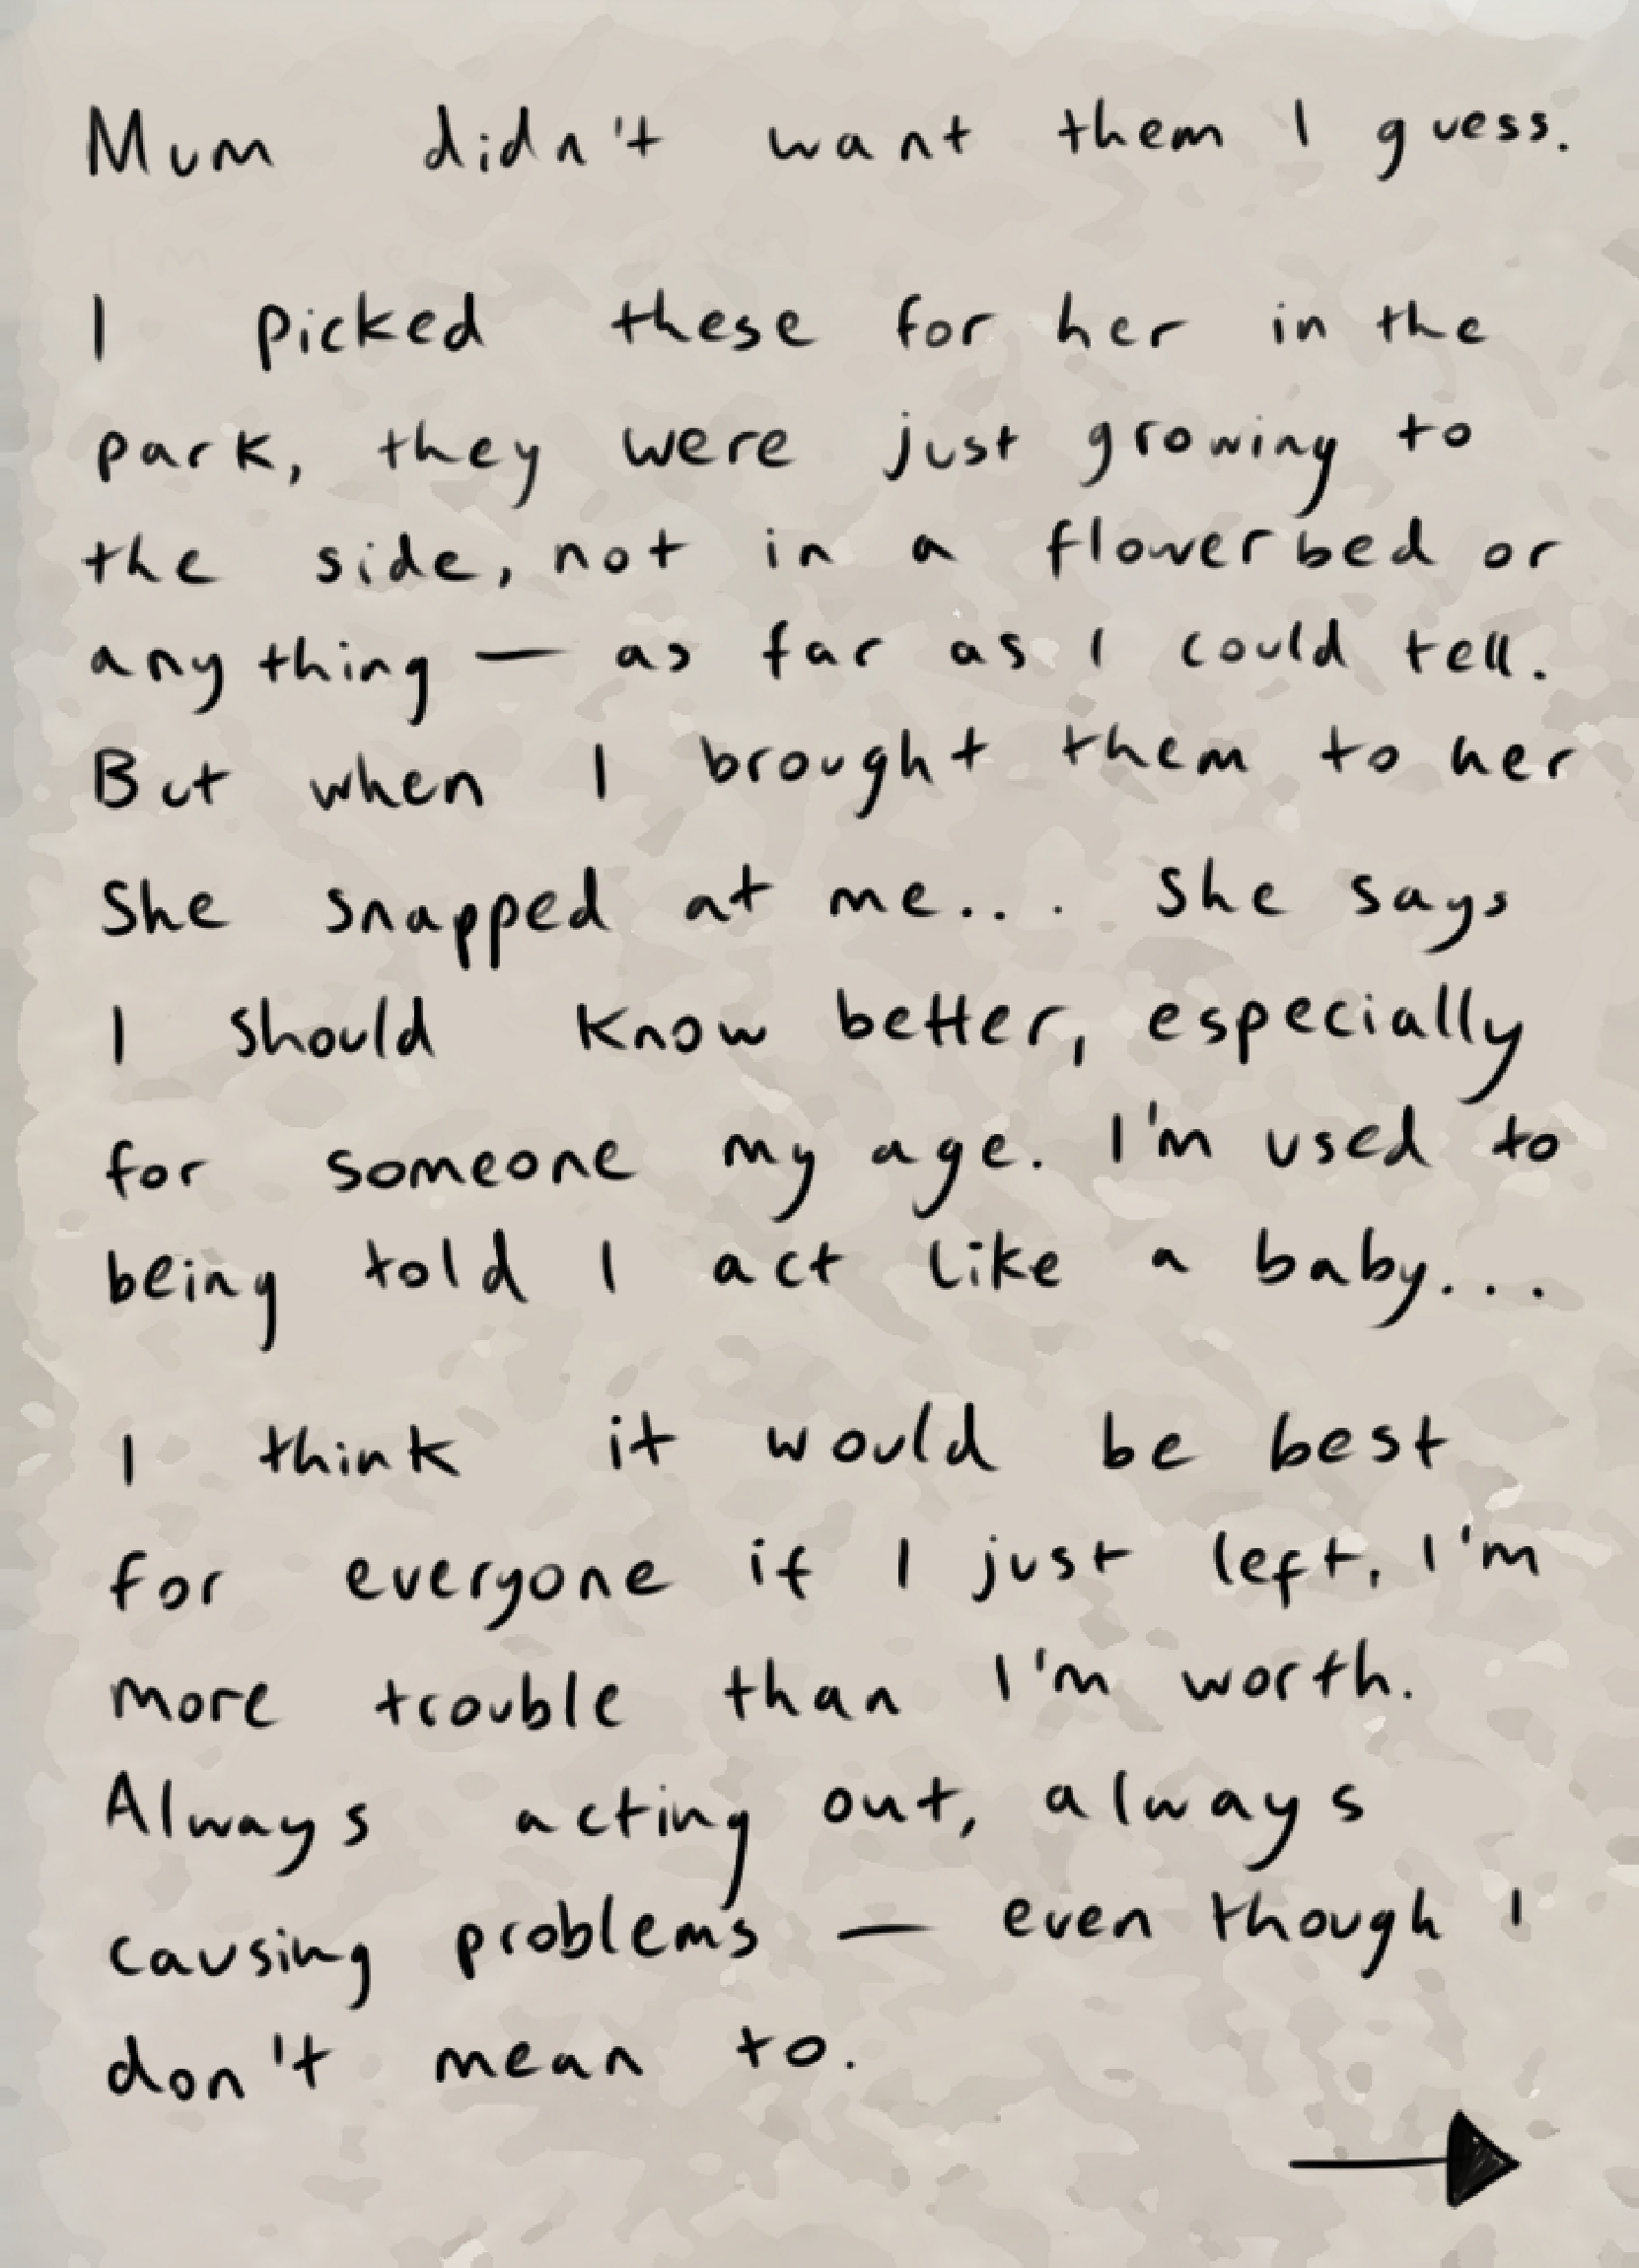 Mum didn't want them I guess.
I picked these for her in the
park, they were just growing to
the side, not in a flowerbed or
anything — as far as I could tell.
But when I brought them to her
She snapped at me... She says
I should know better, especially
for someone my age. I'm used to
being told I act like a baby...
I think it would be best
for everyone if I just left, I'm
more trouble than I'm worth.
Always acting out, always
causing problems — even though I
don't mean to.